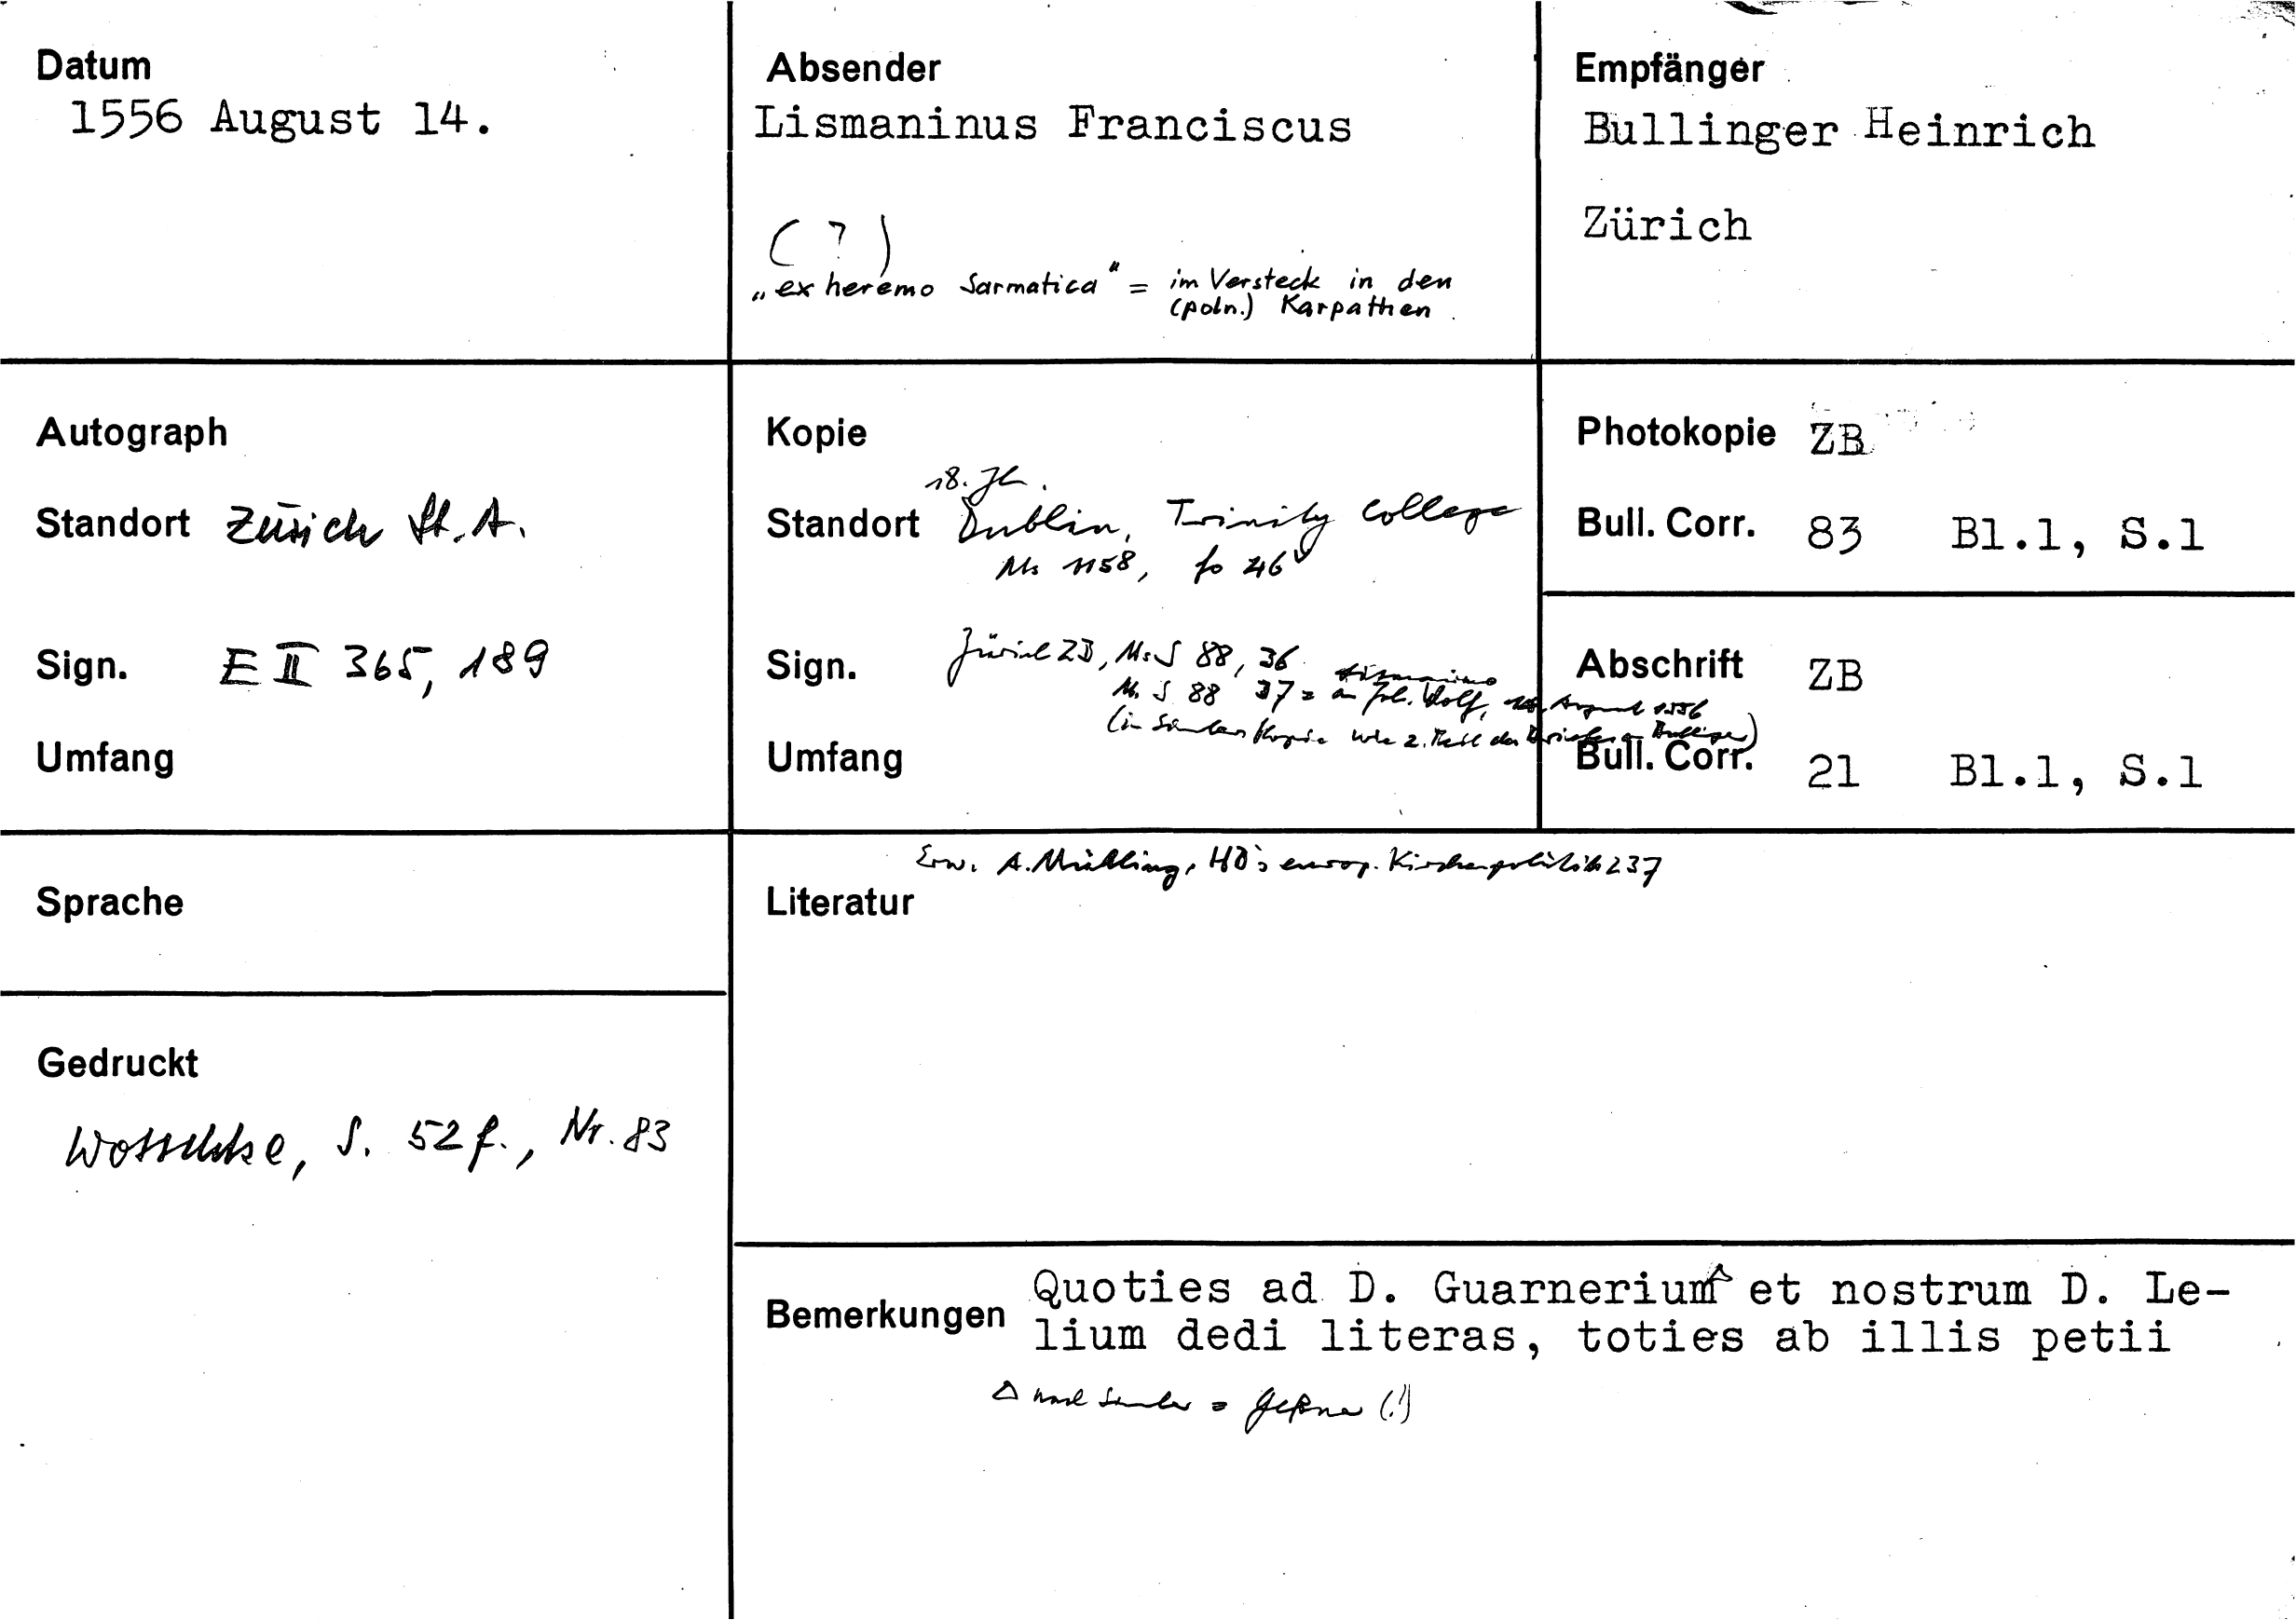 Datum
1556 August 14.
Absender
Lismaninus Franciscus
( ? )
„ex heremo Sarmatica" = im Versteck in den
(poln.) Karpathen
Empfänger
Bullinger Heinrich
Zürich
Autograph
Standort Zürich St.A.
Sign. E II 365, 189
Umfang
Kopie
18. Jh.
Standort Dublin, Trinity College
Ms 1158, fo 46v
Sign. Zürich ZB, Ms S 88, 36
Ms S 88 37 = an Joh. Wolf, August 1556
(in Simlers Kopie wie 2. Teil des Briefes an Bullinger)
Umfang
Photokopie ZB
Bull. Corr. 83 Bl.1, S.1
Abschrift ZB
Bull. Corr. 21 Bl.1, S.1
Sprache
Erw. A. Mühling, HB's europ. Kirchenpolitik 237
Literatur
Gedruckt
Wotschke, S. 52 f., Nr. 83
Bemerkungen
Quoties ad D. Guarnerium△ et nostrum D. Le-
lium dedi literas, toties ab illis petii
△ nach Simler = Geßner (!)